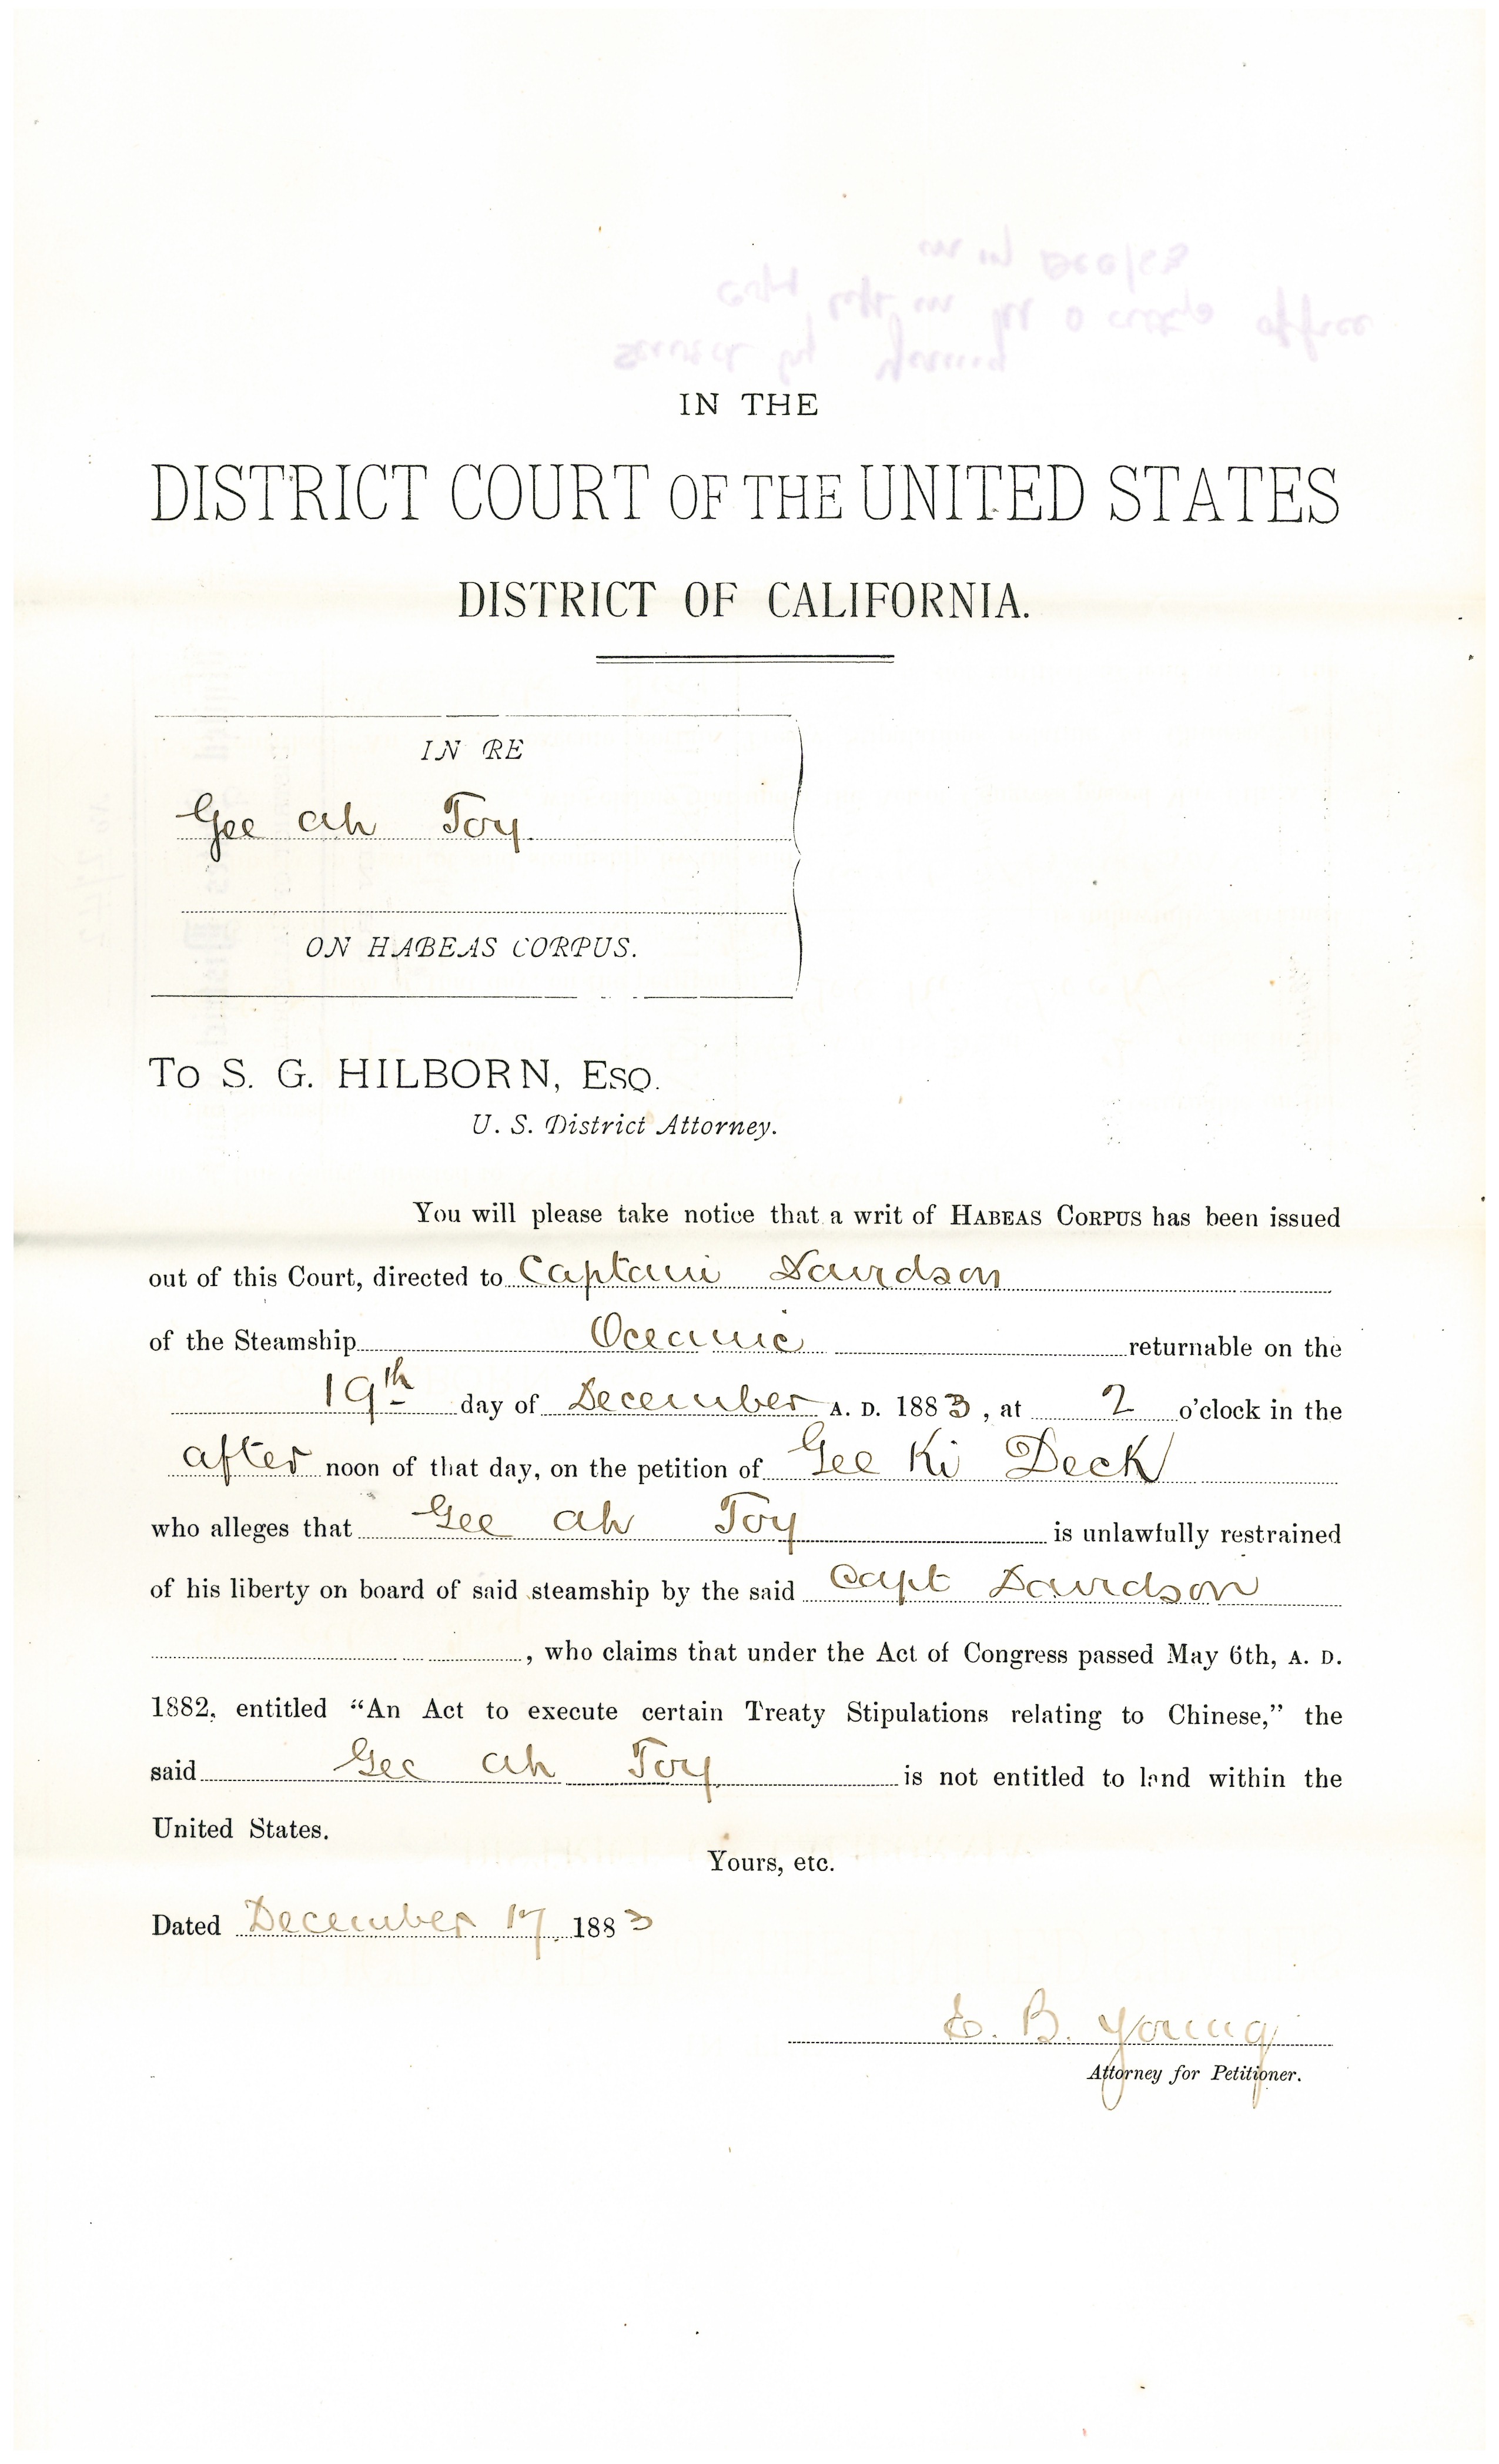 IN THE
DISTRICT COURT OF THE UNITED STATES
DISTRICT OF CALIFORNIA.
IN RE
Gee ah Toy
ON HABEAS CORPUS.
To S. G. HILBORN, Esq.
U. S. District Attorney.
You will please take notice that a writ of HABEAS CORPUS has been issued
out of this Court, directed to Captain Davidson
of the Steamship Oceanic returnable on the
19th day of December A. D. 1883, at 2 o'clock in the
after noon of that day, on the petition of Gee Ki Deck
who alleges that Gee ah Toy is unlawfully restrained
of his liberty on board of said steamship by the said Capt Davidson
, who claims that under the Act of Congress passed May 6th, A. D.
1882, entitled “An Act to execute certain Treaty Stipulations relating to Chinese,” the
said Gee ah Toy is not entitled to land within the
United States.
Yours, etc.
Dated December 17 1883
E. B. Young
Attorney for Petitioner.